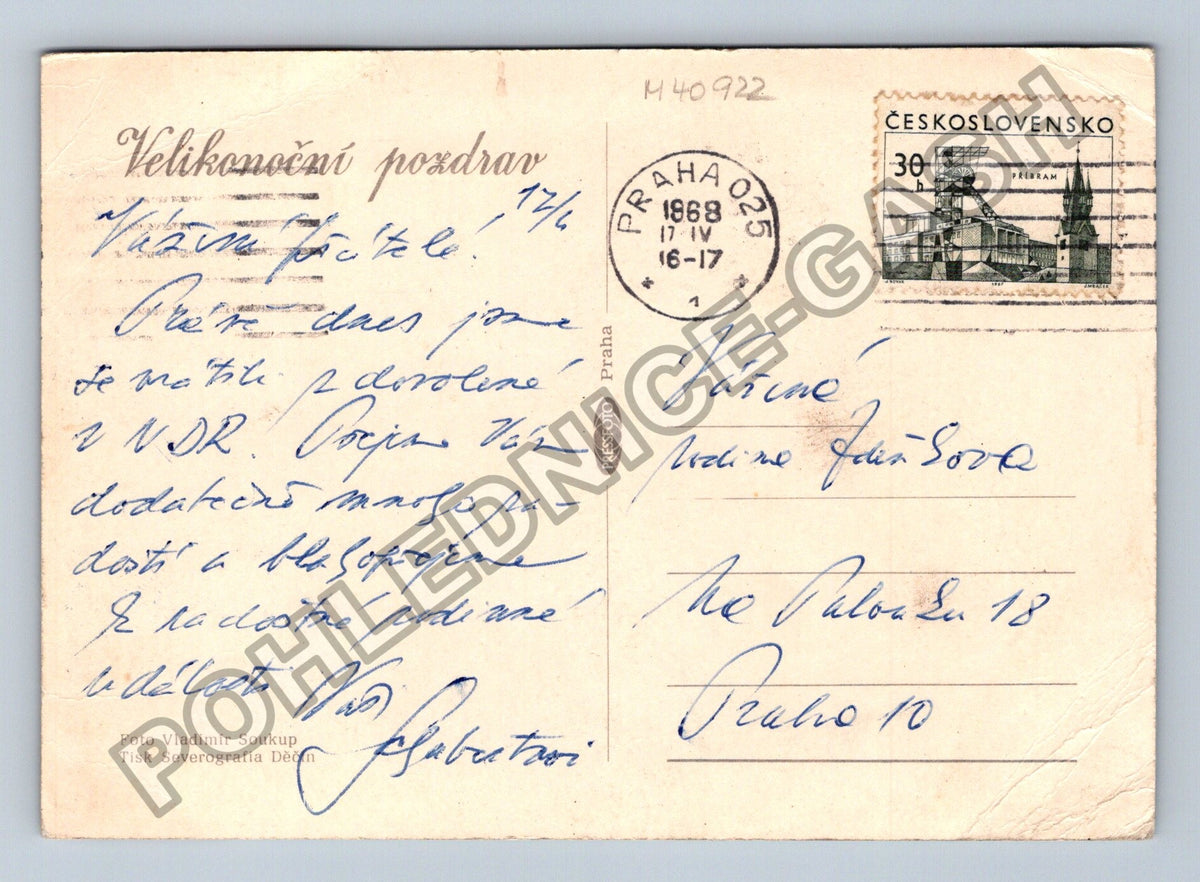 M 40922
ČESKOSLOVENSKO
30 h
PŘÍBRAM
1967
PRAHA 025
1868
17 IV
16-17
* 1 *
Velikonoční pozdrav
17/4
Vážení přátelé!
Právě dnes jsme
se vrátili z dovolené
v NDR. Přejeme Vám
dodatečně mnoho ra-
dostí a blahopřejeme
k radostné rodinné
události Vaši
Foto Vladimír Soukup
Tisk Severografia Děčín
PRESSFOTO Praha
Vážená
rodina
Na Palouku 18
Praha 10
POHLEDNICE-GASH